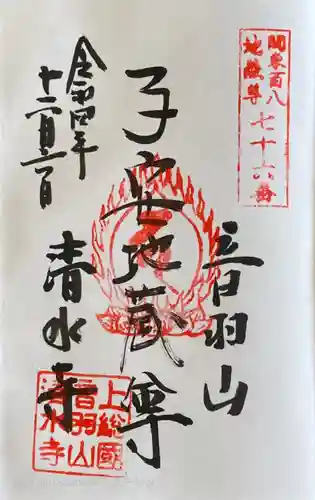 関東百八
地蔵尊
七十六番
音羽山
子安地蔵尊
清水寺
令和四年
十二月二日
上総國
音羽山
清水寺